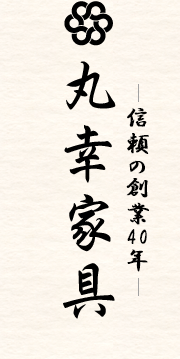 ―信頼の創業40年―
丸幸家具